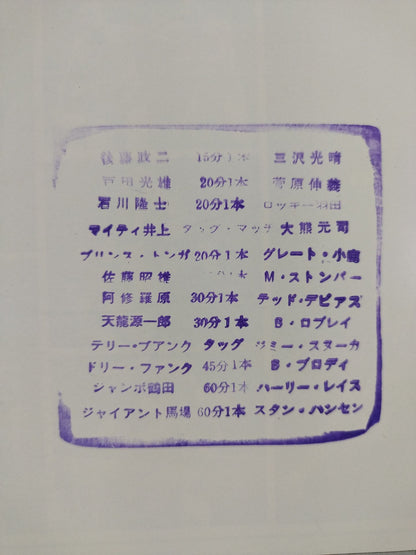 後藤政二 15分1本 三沢光晴
百田光雄 20分1本 菅原伸義
石川隆士 20分1本 ロッキー羽田
マイティ井上 タッグ・マッチ 大熊元司
プリンス・トンガ 20分1本 グレート・小鹿
佐藤昭雄 M・ストンパー
阿修羅原 30分1本 テッド・デビアス
天龍源一郎 30分1本 B・ロブレイ
テリー・ファンク タッグ ジミー・スヌーカ
ドリー・ファンク 45分1本 B・ブロディ
ジャンボ鶴田 60分1本 ハーリー・レイス
ジャイアント馬場 60分1本 スタン・ハンセン